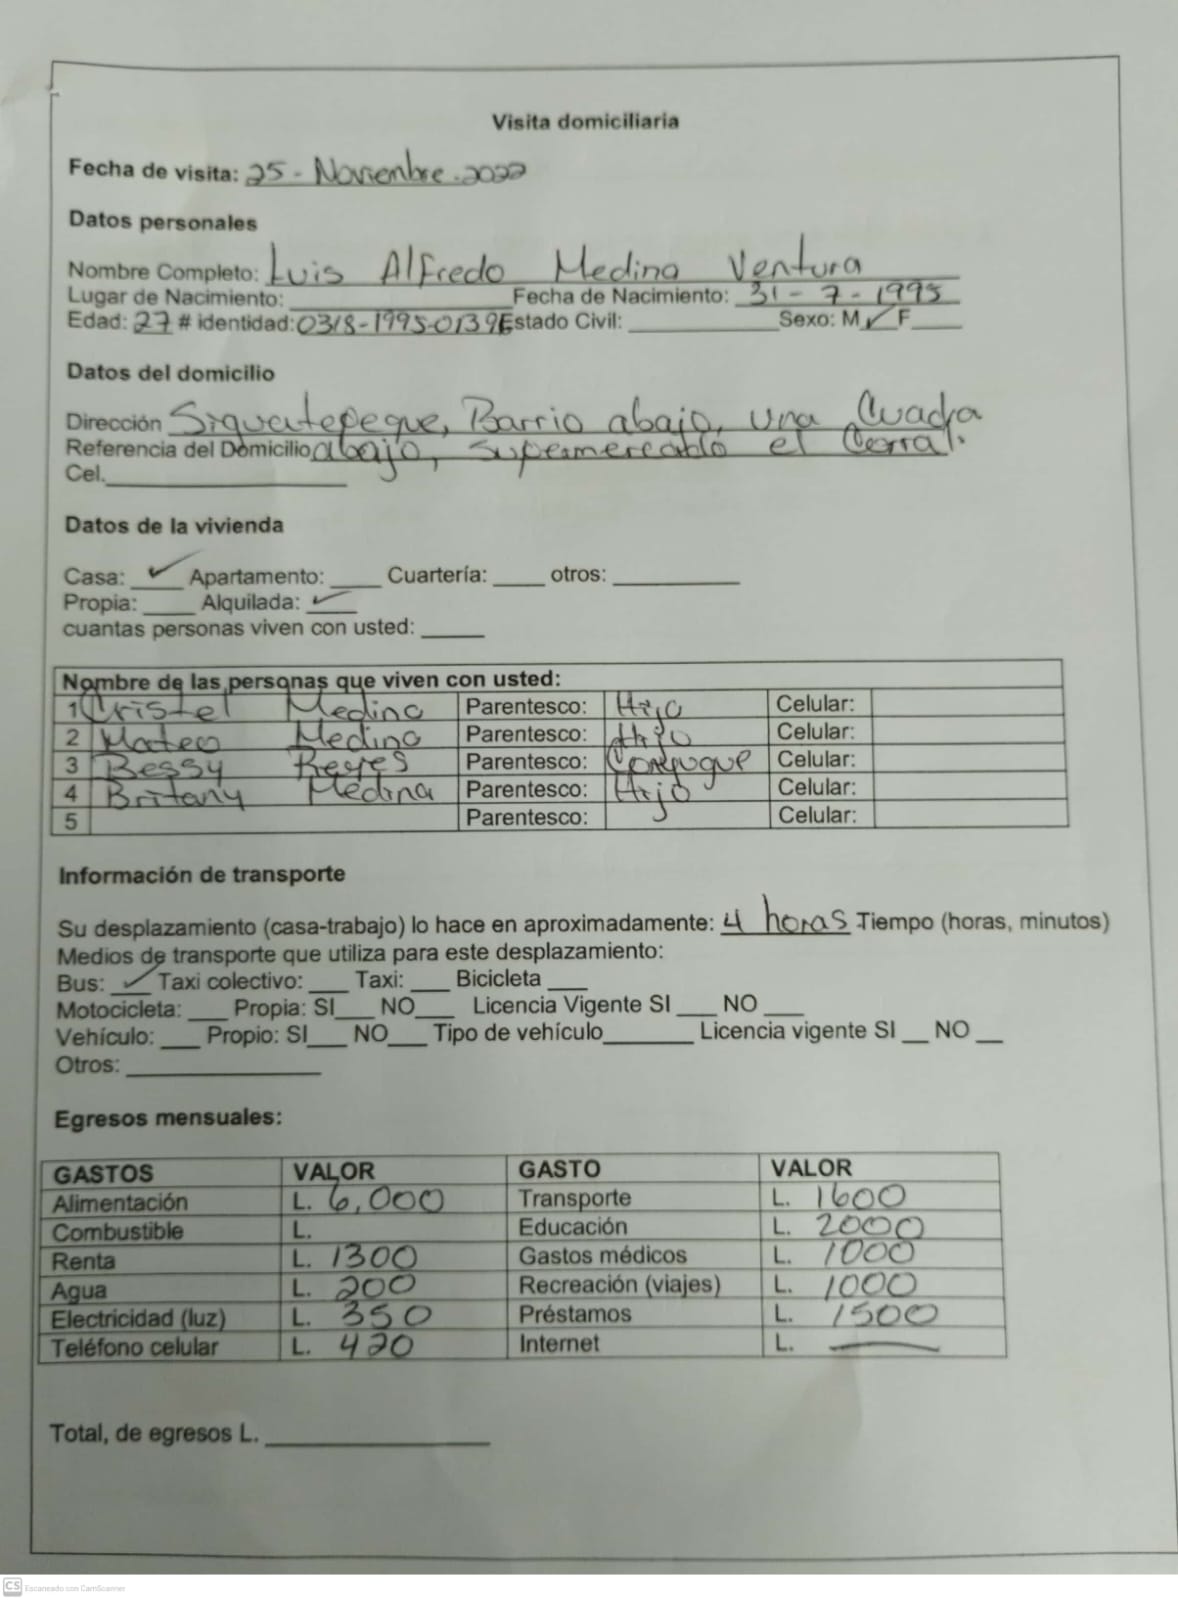 Visita domiciliaria
Fecha de visita: 25 - Noviembre. 2022
Datos personales
Nombre Completo: Luis Alfredo Medina Ventura
Lugar de Nacimiento: ____________ Fecha de Nacimiento: 31 - 7 - 1995
Edad: 27 # identidad: 0318-1995-0139 Estado Civil: ____________ Sexo: M ✓ F ____
Datos del domicilio
Dirección Siguatepeque, Barrio abajo, una Cuadra
Referencia del Domicilio abajo, supermercado el Corral.
Cel. ____________
Datos de la vivienda
Casa: ✓ Apartamento: ____ Cuartería: ____ otros: ____________
Propia: ____ Alquilada: ✓
cuantas personas viven con usted: _____
Nombre de las personas que viven con usted:
1 Cristel Medina Parentesco: Hija Celular:
2 Mateo Medina Parentesco: Hijo Celular:
3 Bessy Reyes Parentesco: Conyugue Celular:
4 Britany Medina Parentesco: Hijo Celular:
5 Parentesco: Celular:
Información de transporte
Su desplazamiento (casa-trabajo) lo hace en aproximadamente: 4 horas Tiempo (horas, minutos)
Medios de transporte que utiliza para este desplazamiento:
Bus: ✓ Taxi colectivo: ___ Taxi: ___ Bicicleta ___
Motocicleta: ___ Propia: SI___ NO___ Licencia Vigente SI ___ NO ___
Vehículo: ___ Propio: SI___ NO___ Tipo de vehículo_______ Licencia vigente SI __ NO __
Otros: ____________
Egresos mensuales:
GASTOS VALOR GASTO VALOR
Alimentación L. 6,000 Transporte L. 1600
Combustible L. Educación L. 2000
Renta L. 1300 Gastos médicos L. 1000
Agua L. 200 Recreación (viajes) L. 1000
Electricidad (luz) L. 350 Préstamos L. 1500
Teléfono celular L. 420 Internet L. —
Total, de egresos L. ____________
CS Escaneado con CamScanner